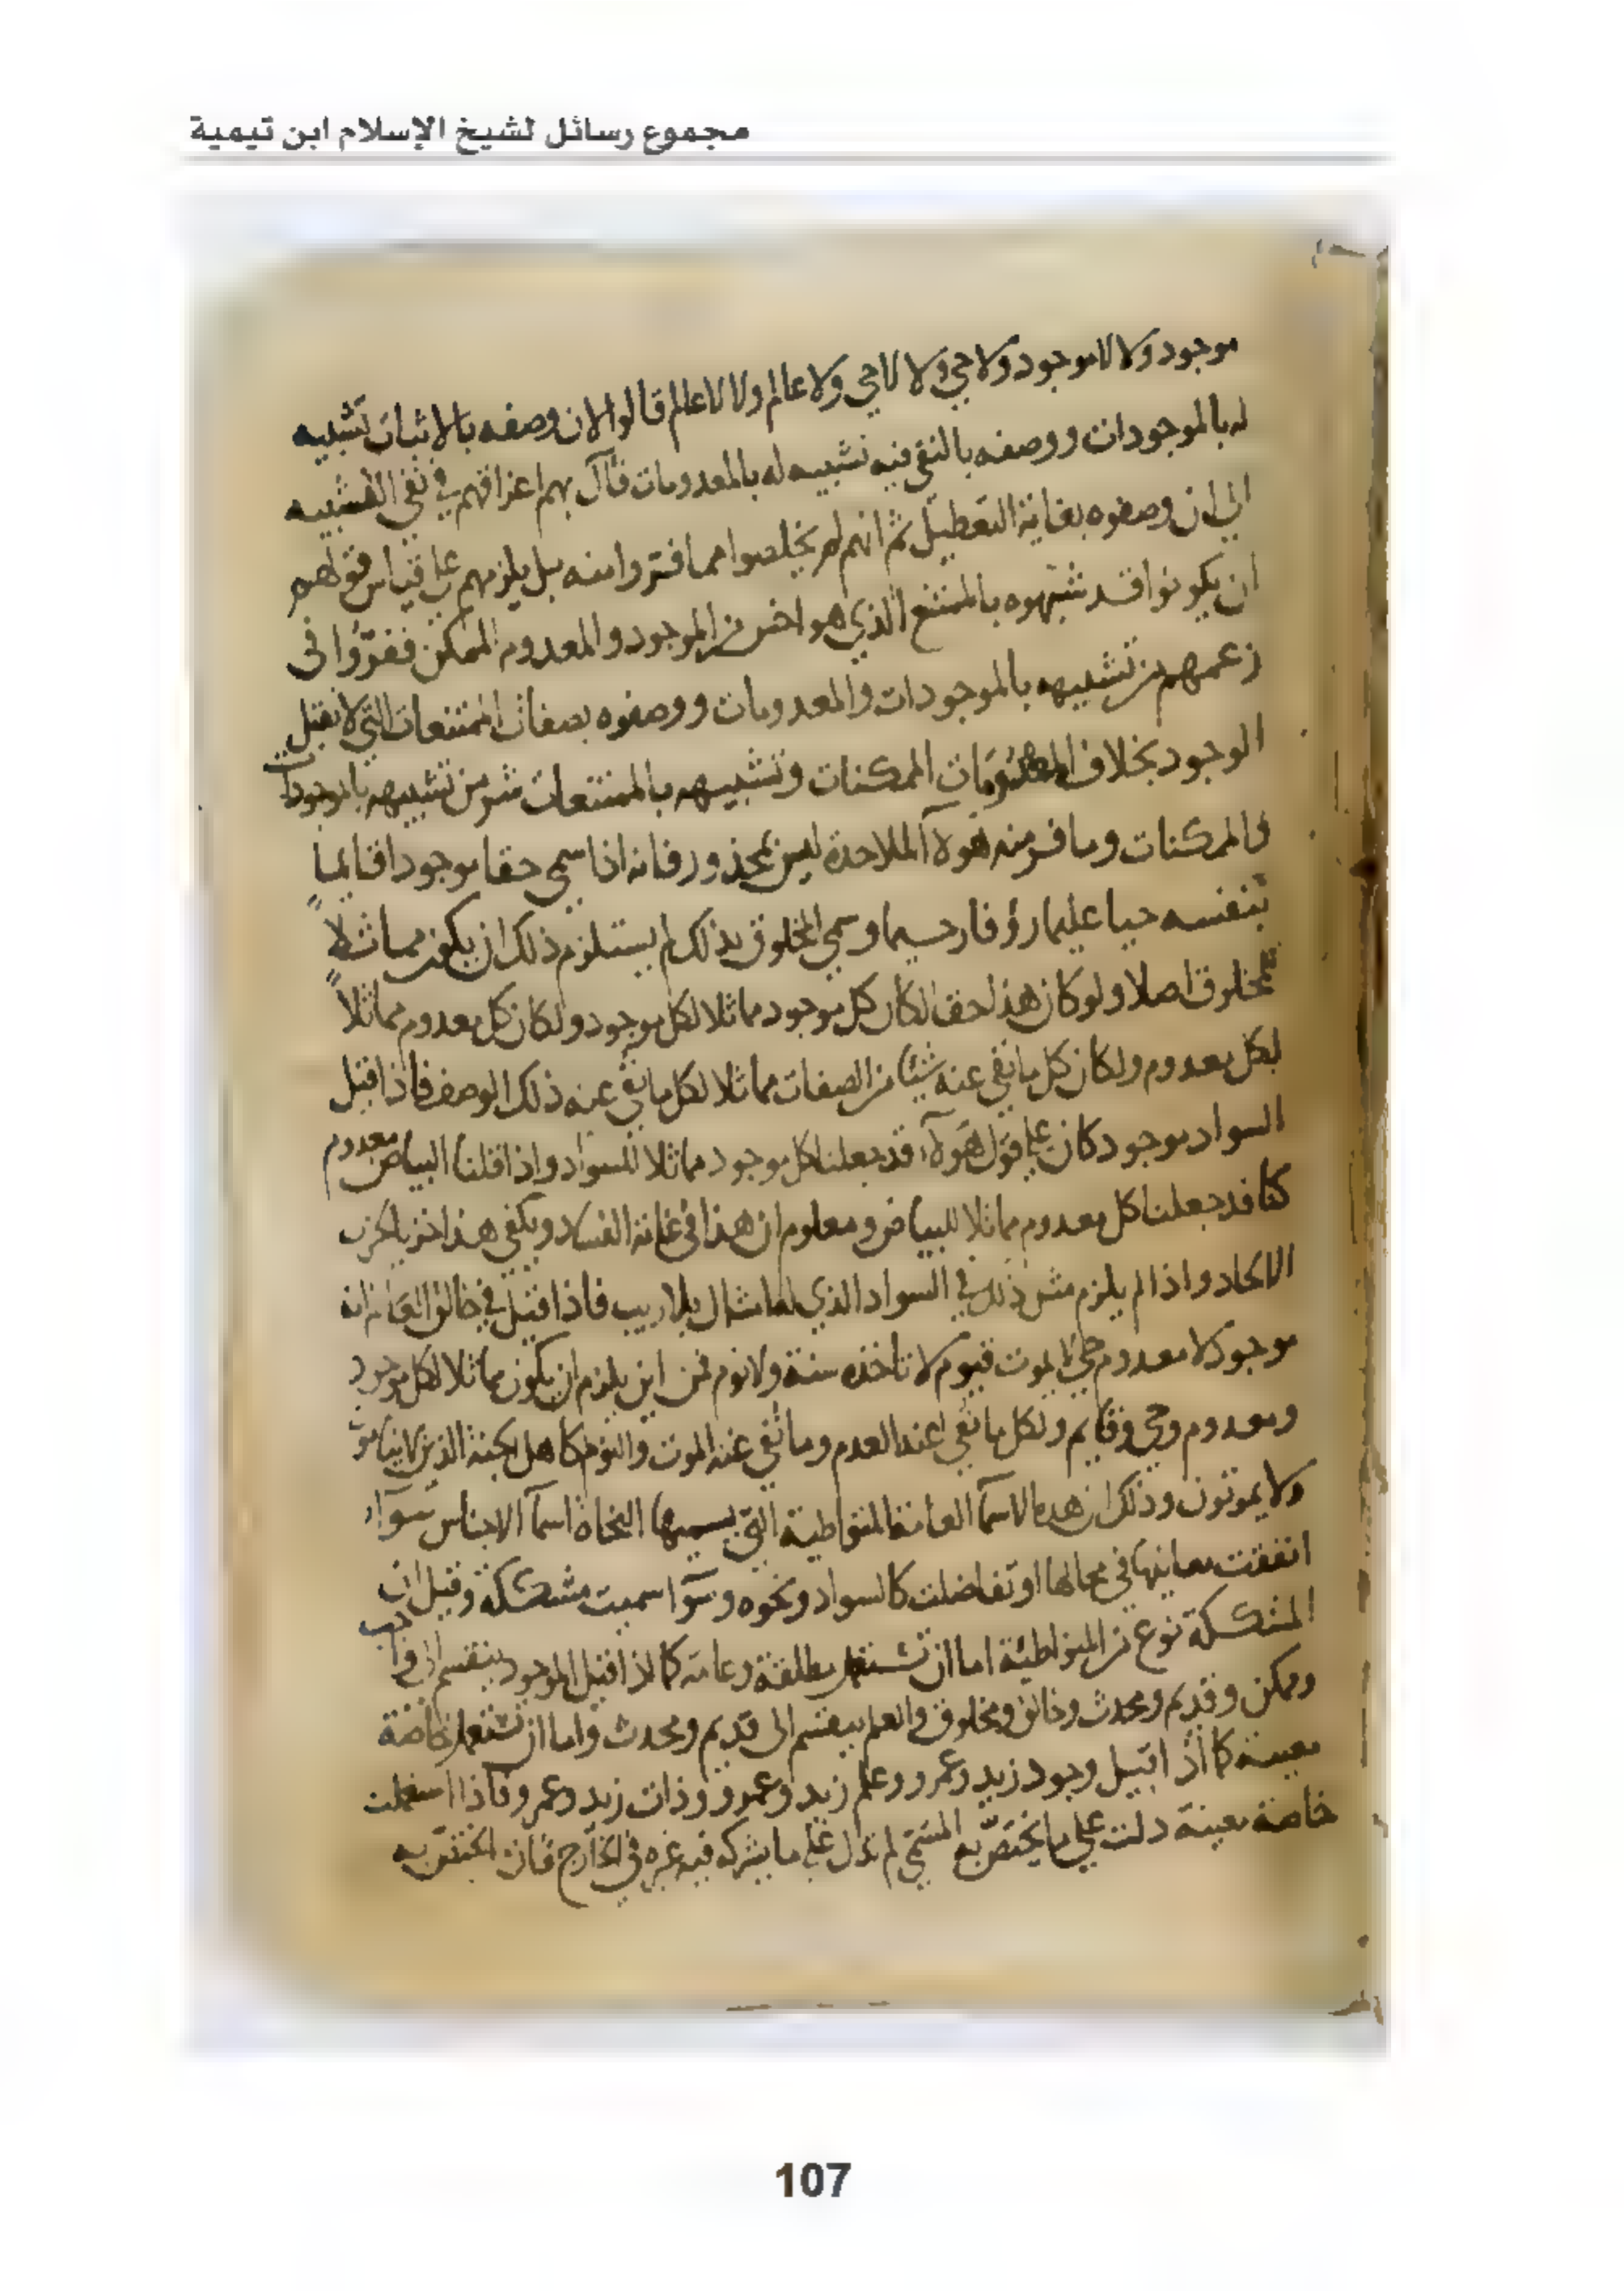 مجموع رسائل لشيخ الإسلام ابن تيمية
موجود ولا لا موجود ولا حي ولا لا حي ولا عالم ولا لا عالم قالوا لان وصفه بالاثبات تشبيه
له بالموجودات ووصفه بالنفي فيه تشبيه له بالمعدومات فآل بهم اغراقهم في نفي التشبيه
الى ان وصفوه بغاية التعطيل ثم انهم لم يخلصوا مما فروا منه بل يلزمهم على قياس قولهم
ان يكونوا قد شبهوه بالممتنع الذي هو اخس من الموجود والمعدوم الممكن ففرّوا في
زعمهم من تشبيهه بالموجودات والمعدومات ووصفوه بصفات الممتنعات التي لا تقبل
الوجود بخلاف المعدومات الممكنات وتشبيهه بالممتنعات شر من تشبيهه بالموجودات
والممكنات وما فر منه هؤلآ الملاحدة ليس بمحذور فانه اذا سمي حقا موجودا قائما
بنفسه حيا عليما رؤفا رحيما وسمي المخلوق بذلك لم يستلزم ذلك ان يكون مماثلا
للمخلوق اصلا ولو كان هذا حقا لكان كل موجود مماثلا لكل موجود ولكان كل معدوم مماثلاً
لكل معدوم ولكان كل ما نفي عنه شيئا من الصفات مماثلا لكل ما نفي عنه ذلك الوصف فاذا قيل
السواد موجود كان على قول هؤلآء قد جعلنا كل موجود مماثلا للسواد واذا قلنا البياض معدوم
كنا قد جعلنا كل معدوم مماثلا للبياض ومعلوم ان هذا في غاية الفساد ويكفي هذا خزيا لحزب
الالحاد واذا لم يلزم مثل ذلك في السواد الذي له امثال بلا ريب فاذا قيل في خالق العالم انه
موجود لا معدوم حي لا يموت قيوم لا تاخذه سنة ولا نوم فمن اين يلزم ان يكون مماثلا لكل موجود
ومعدوم وحي وقايم ولكل ما نفي عنه العدم وما نفي عنه الموت والنوم كاهل الجنة الذين لا ينامون
ولا يموتون وذلك ان هذه الاسمآ العامة المتواطية التي يسميها النحاة اسمآ الاجناس سوآء
اتفقت معانيها في محالها او تفاضلت كالسواد ونحوه وسوآ سميت مشككة وقيل ان
المشككة نوع من المتواطئة اما ان تستعمل مطلقة وعامة كما اذا قيل الموجود ينقسم الى واجب
وممكن وقديم ومحدث وخالق ومخلوق والعلم ينقسم الى قديم ومحدث واما ان تستعمل خاصة
معينة كما اذا قيل وجود زيد وعمرو وعلم زيد وعمرو وذات زيد وعمرو فاذا استعملت
خاصة معينة دلت على ما يختصّ به المسمّى لم تدل على ما يشركه فيه غيره في الخارج فان ما يختص به
107